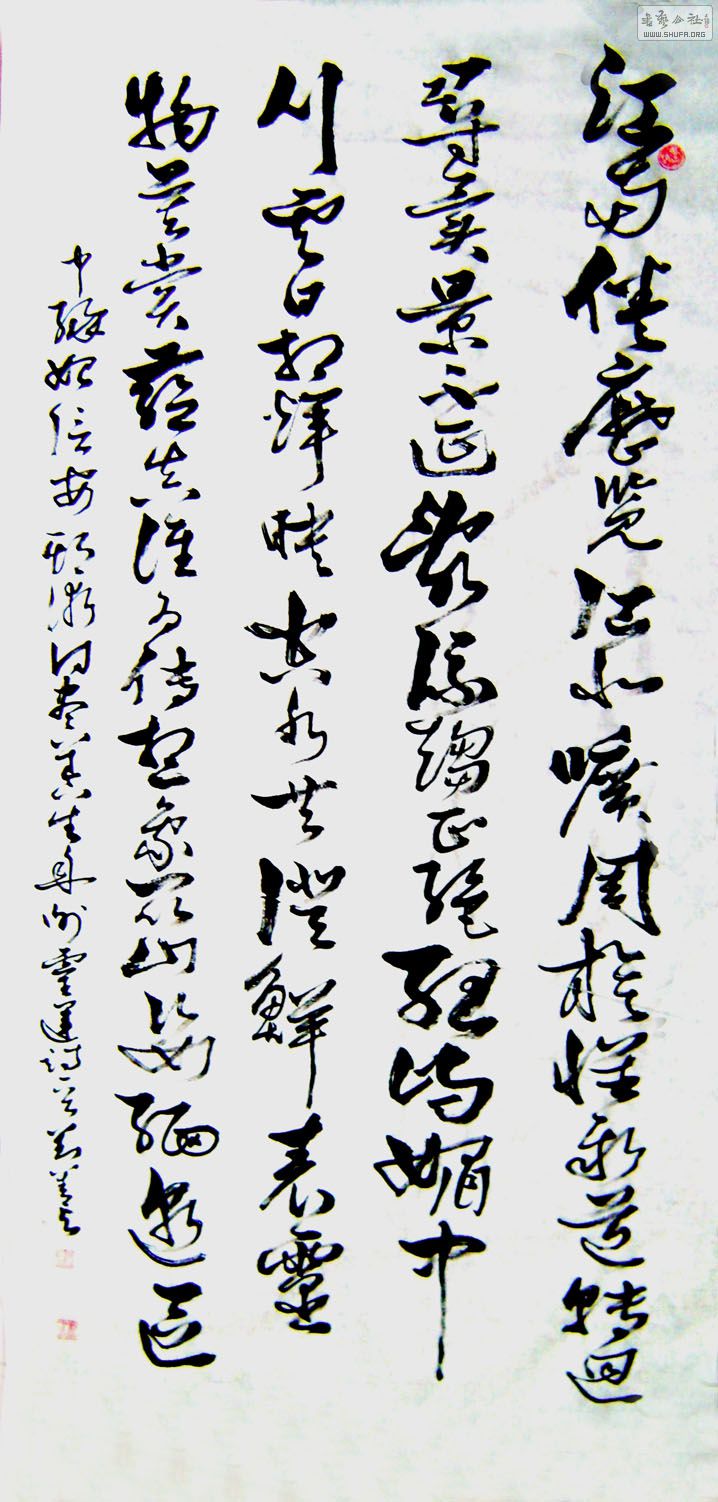 江南倦歷覽江北曠周旋懷新道轉迥
尋異景不延亂流趨正絕孤嶼媚中
川雲日相輝映空水共澄鮮表靈
物莫賞蘊真誰為傳想象崑山姿緬邈區
中緣始信安期術得盡養生年謝靈運詩一首
书艺公社
WWW.SHUFA.ORG